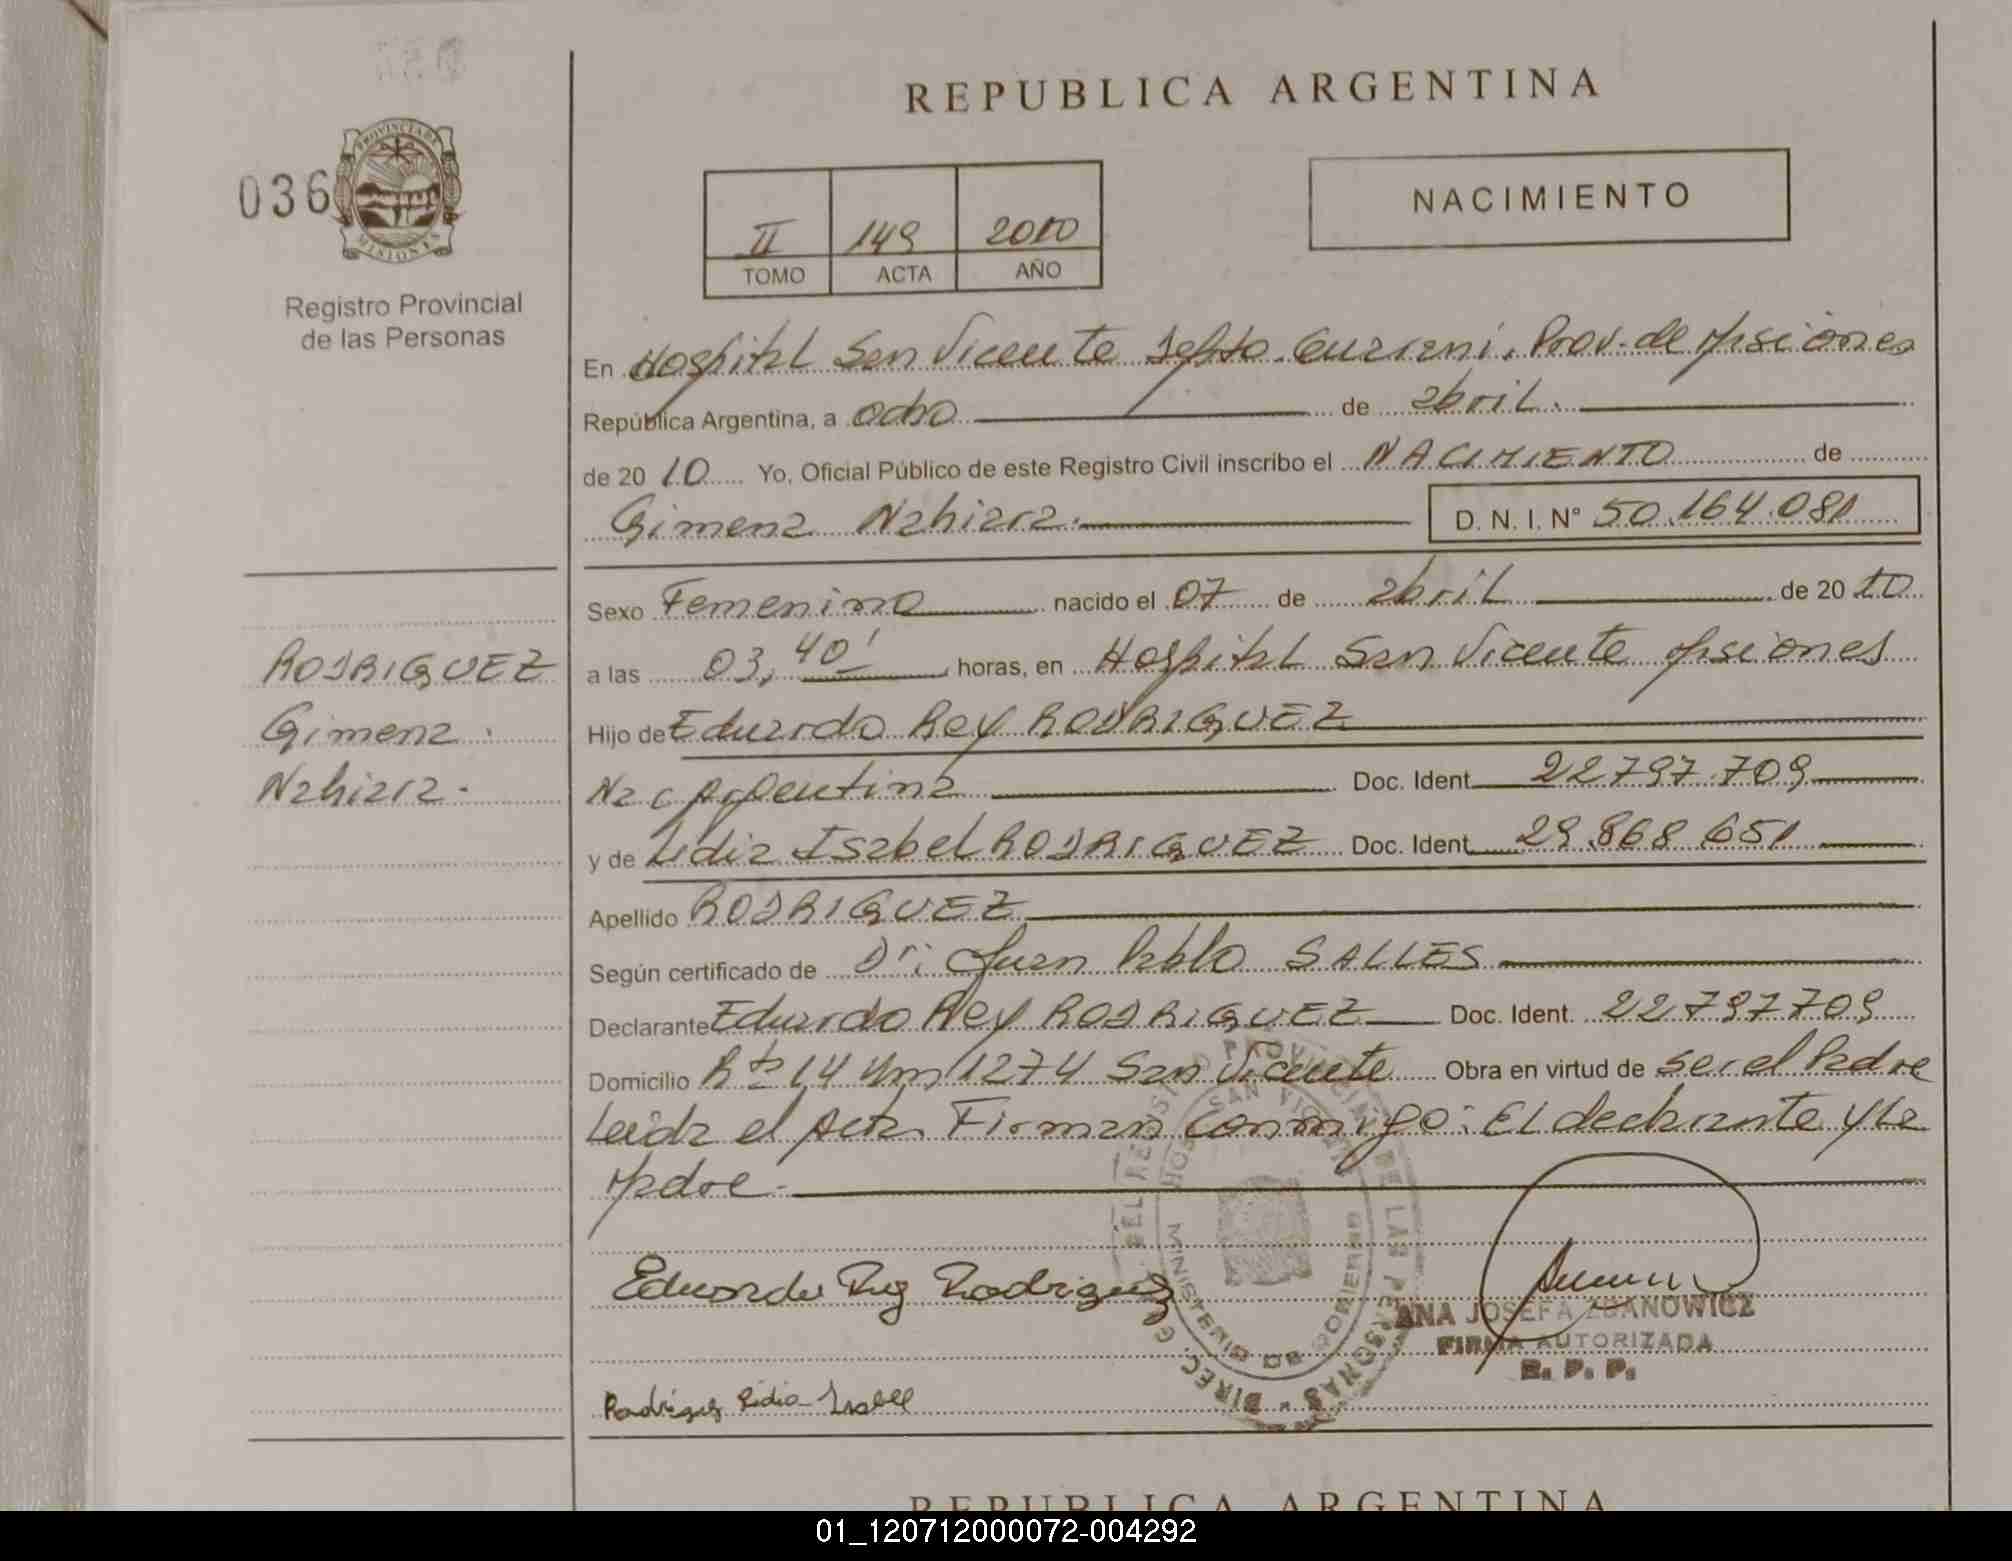 REPUBLICA ARGENTINA
036
PROVINCIA DE
MISIONES
Registro Provincial
de las Personas
II 149 2010
TOMO ACTA AÑO
NACIMIENTO
En Hospital San Vicente Depto. Guarani, Prov. de Misiones
República Argentina, a ocho de abril.
de 20 10 Yo, Oficial Público de este Registro Civil inscribo el NACIMIENTO de
Gimena Nahiara. D. N. I. N° 50.164.081
Sexo Femenino nacido el 07 de abril de 20 10
a las 03,40' horas, en Hospital San Vicente Misiones
Hijo de Eduardo Rey RODRIGUEZ
Nac Argentina Doc. Ident. 22797.709
y de Lidia Isabel RODRIGUEZ Doc. Ident. 29.868.651
Apellido RODRIGUEZ
Según certificado de Dr: Juan Pablo SALLES
Declarante Eduardo Rey RODRIGUEZ Doc. Ident. 22797709
Domicilio Rta 14 Km 1274 San Vicente Obra en virtud de ser el Padre
Leida el Acta. Firman conmigo: El declarante y la
Madre.
RODRIGUEZ
Gimena.
Nahiara.
Eduardo Rey Rodriguez
Rodriguez Lidia Isabel
ANA JOSEFA ZBANOWICZ
FIRMA AUTORIZADA
R. P. P.
DIREC. G. DEL REGISTRO PROVINCIAL DE LAS PERSONAS
MINISTERIO DE GOBIERNO
SAN VICENTE
REPUBLICA ARGENTINA
01_120712000072-004292